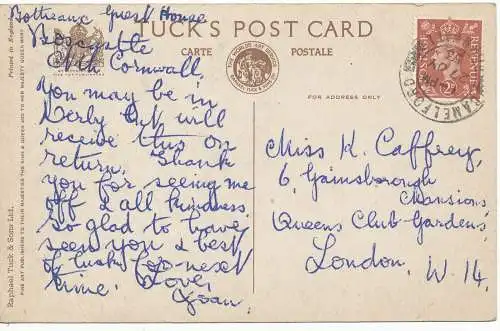 Bottreaux Guest House
Boscastle
Nth Cornwall.
You may be in
Derby but will
receive this on
return. Thank
you for seeing me
off & all kindness.
So glad to have
seen you & best
of luck for next
time. Love,
Joan
TUCK'S POST CARD
CARTE POSTALE
FOR ADDRESS ONLY
Miss K. Caffrey,
6, Gainsborough
Mansions,
Queens Club Gardens,
London, W. 14.
POSTAGE REVENUE
CAMELFORD
Printed in England
Raphael Tuck & Sons Ltd.,
FINE ART PUBLISHERS TO THEIR MAJESTIES THE KING & QUEEN AND TO HER MAJESTY QUEEN MARY